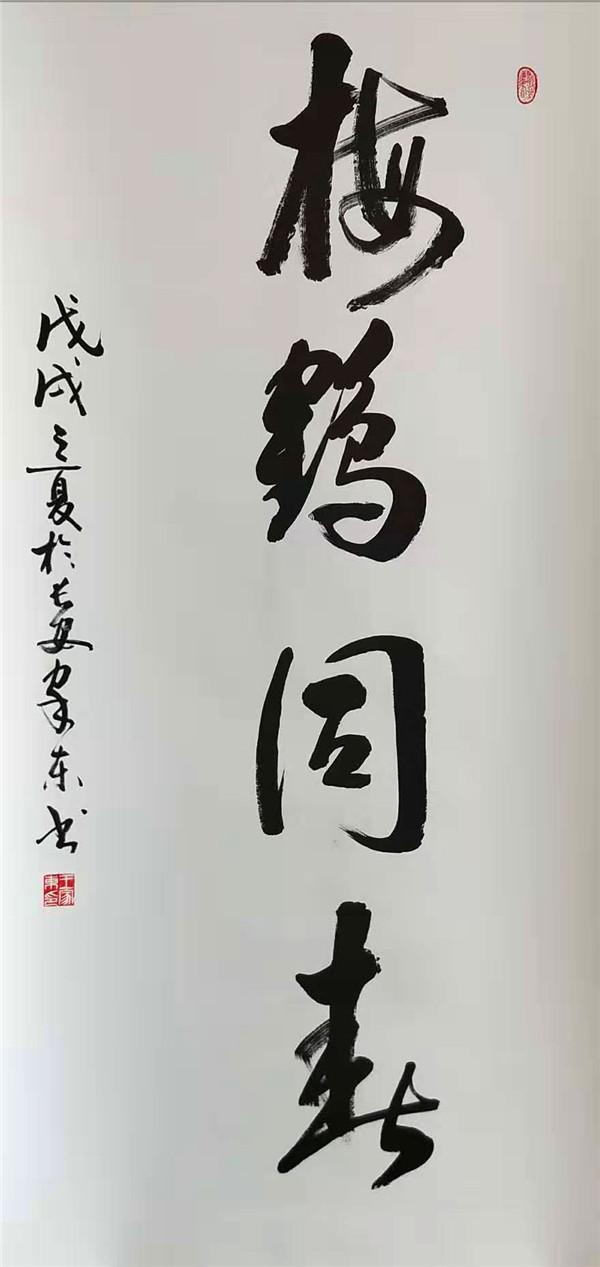 梅鹤同春
戊戌立夏於长安家东书
王家東印